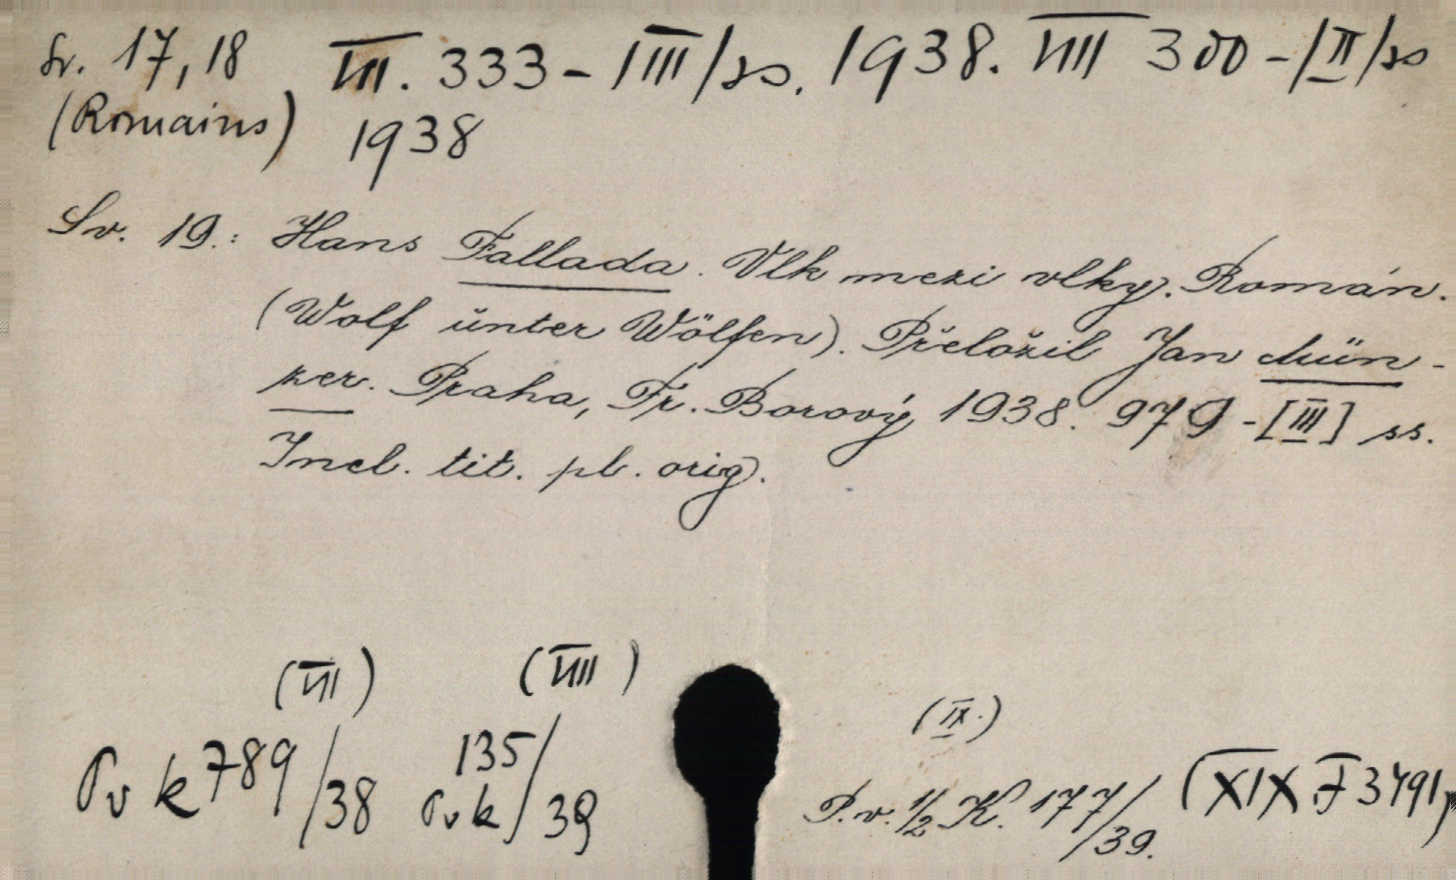 Sv. 17, 18 VII. 333 - |III|ss. 1938. VIII 300 - |II|ss
(Romains) 1938
Sv. 19.: Hans Fallada. Vlk mezi vlky. Román.
(Wolf unter Wölfen). Přeložil Jan Mün-
zer. Praha, Fr. Borový, 1938. 979 - [III] ss.
Incl. tit. pl. orig.
(VII) (VIII)
(IX.)
Pv k 789/38 Pv k 135/39 P.v. 1/2 K. 177/39. (XIX F 3491)